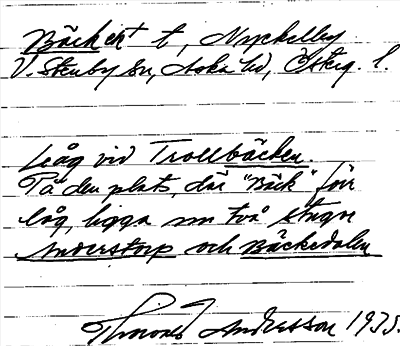 Bäcken t, Nyckelby
V. Stenby sn, Aska hd, Österg. l.
Låg vid Trollbäcken.
På den plats, där "Bäck" förr
låg, ligga nu två stugor
Anderstorp och Bäckedalen
Andersson 1935.